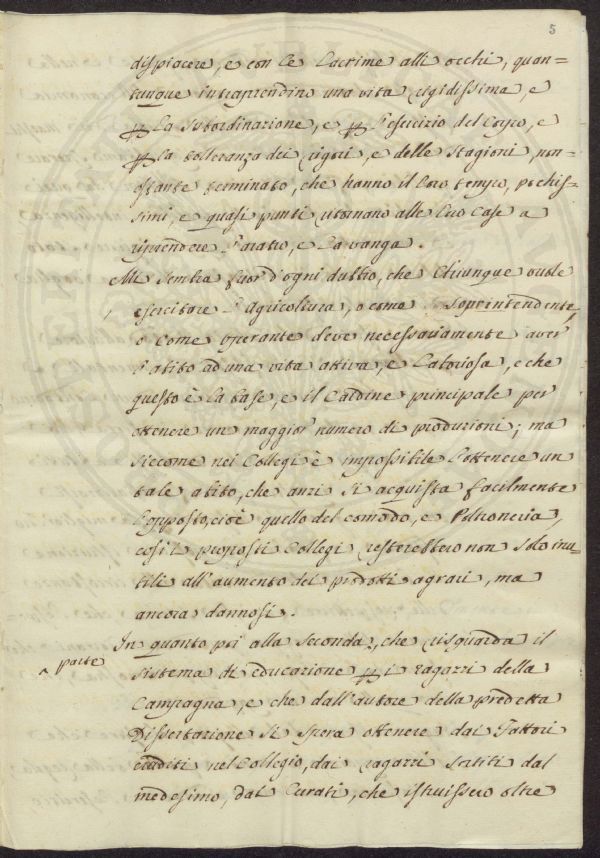 5
dispiacere, e con le lacrime alli occhi, quan=
tunque intraprendino una vita rigidissima, e
p la subordinazione, e p l'esercizio del Corpo, e
p la tolleranza dei rigori, e delle stagioni, non=
ostante terminato, che hanno il loro tempo, pochis=
simi, e quasi punti ritornano alle luo Case a
riprendere l'aratro, e la vanga.
Mi sembra fuor d'ogni dubbio, che chiunque vuole
esercitare l'Agricoltura, o come Soprintendente,
o come operante deve necessariamente aver
l'abito ad una vita attiva, e laboriosa, e che
questo è la base, e il Cardine principale per
ottenere un maggior numero di produzioni; ma
siccome nei Collegi è impossibile l'ottenere un
tale abito, che anzi si acquista facilmente
l'opposto, cioè quello del comodo, e Poltroneria,
così i proposti Collegi resterebbero non solo inu=
tili all'aumento dei prodotti agrari, ma
ancora dannosi.
In quanto poi alla seconda ^, che risguarda il
^ parte
sistema di educazione p i ragazzi della
Campagna, e che dall'autore della predetta
Dissertazione si spera ottenere dai Fattori
eruditi nel Collegio, dai ragazzi sortiti dal
medesimo, dai Curati, che istruissero oltre